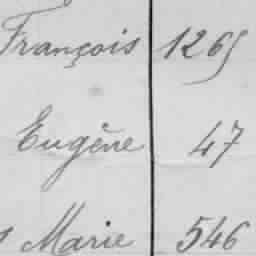 François 1265
Eugène 47
Marie 546